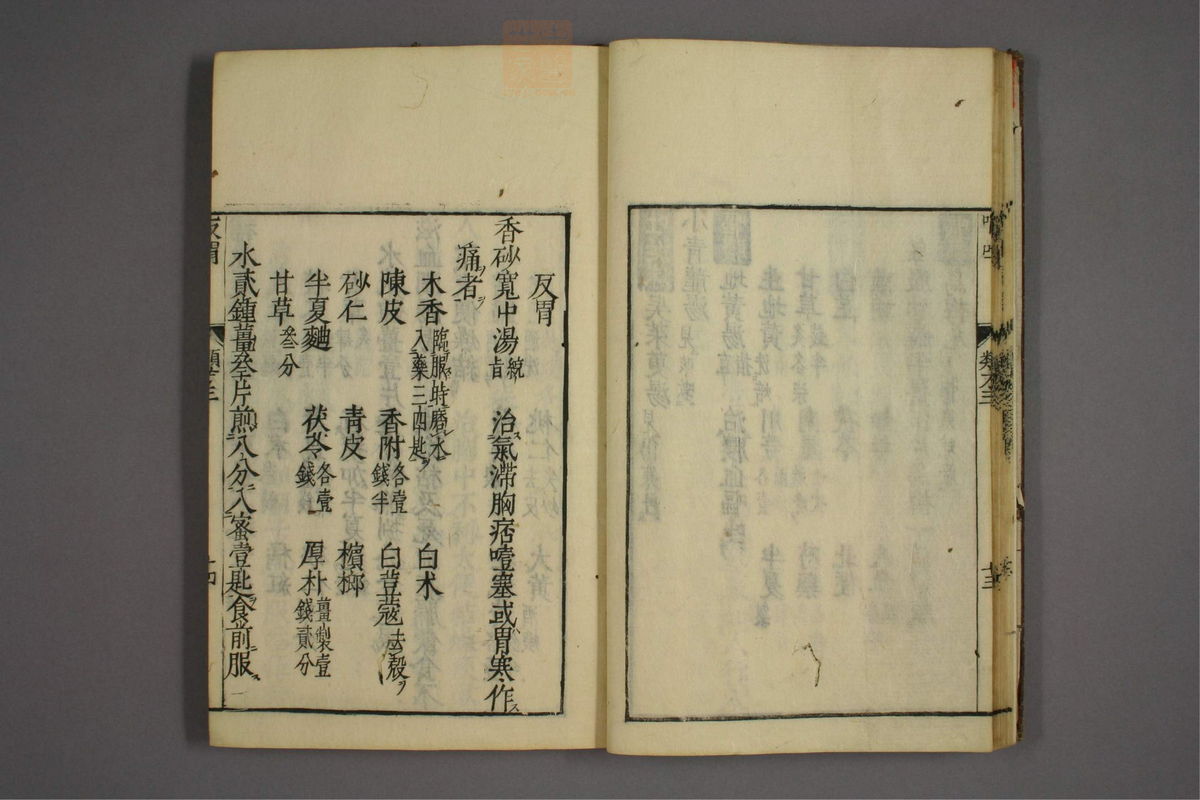 反胃
香砂寬中湯 統旨 治氣滯胸痞噎塞或胃寒作
痛者
木香 臨服時磨水入藥三四匙 白朮
陳皮 香附 各壹錢半 白荳蔻 去殼
砂仁 青皮 檳榔
半夏麯 茯苓 各壹錢 厚朴 薑製壹錢貳分
甘草 叄分
水貳鍾薑叄片煎八分入蜜壹匙食前服
反胃
十四
十三